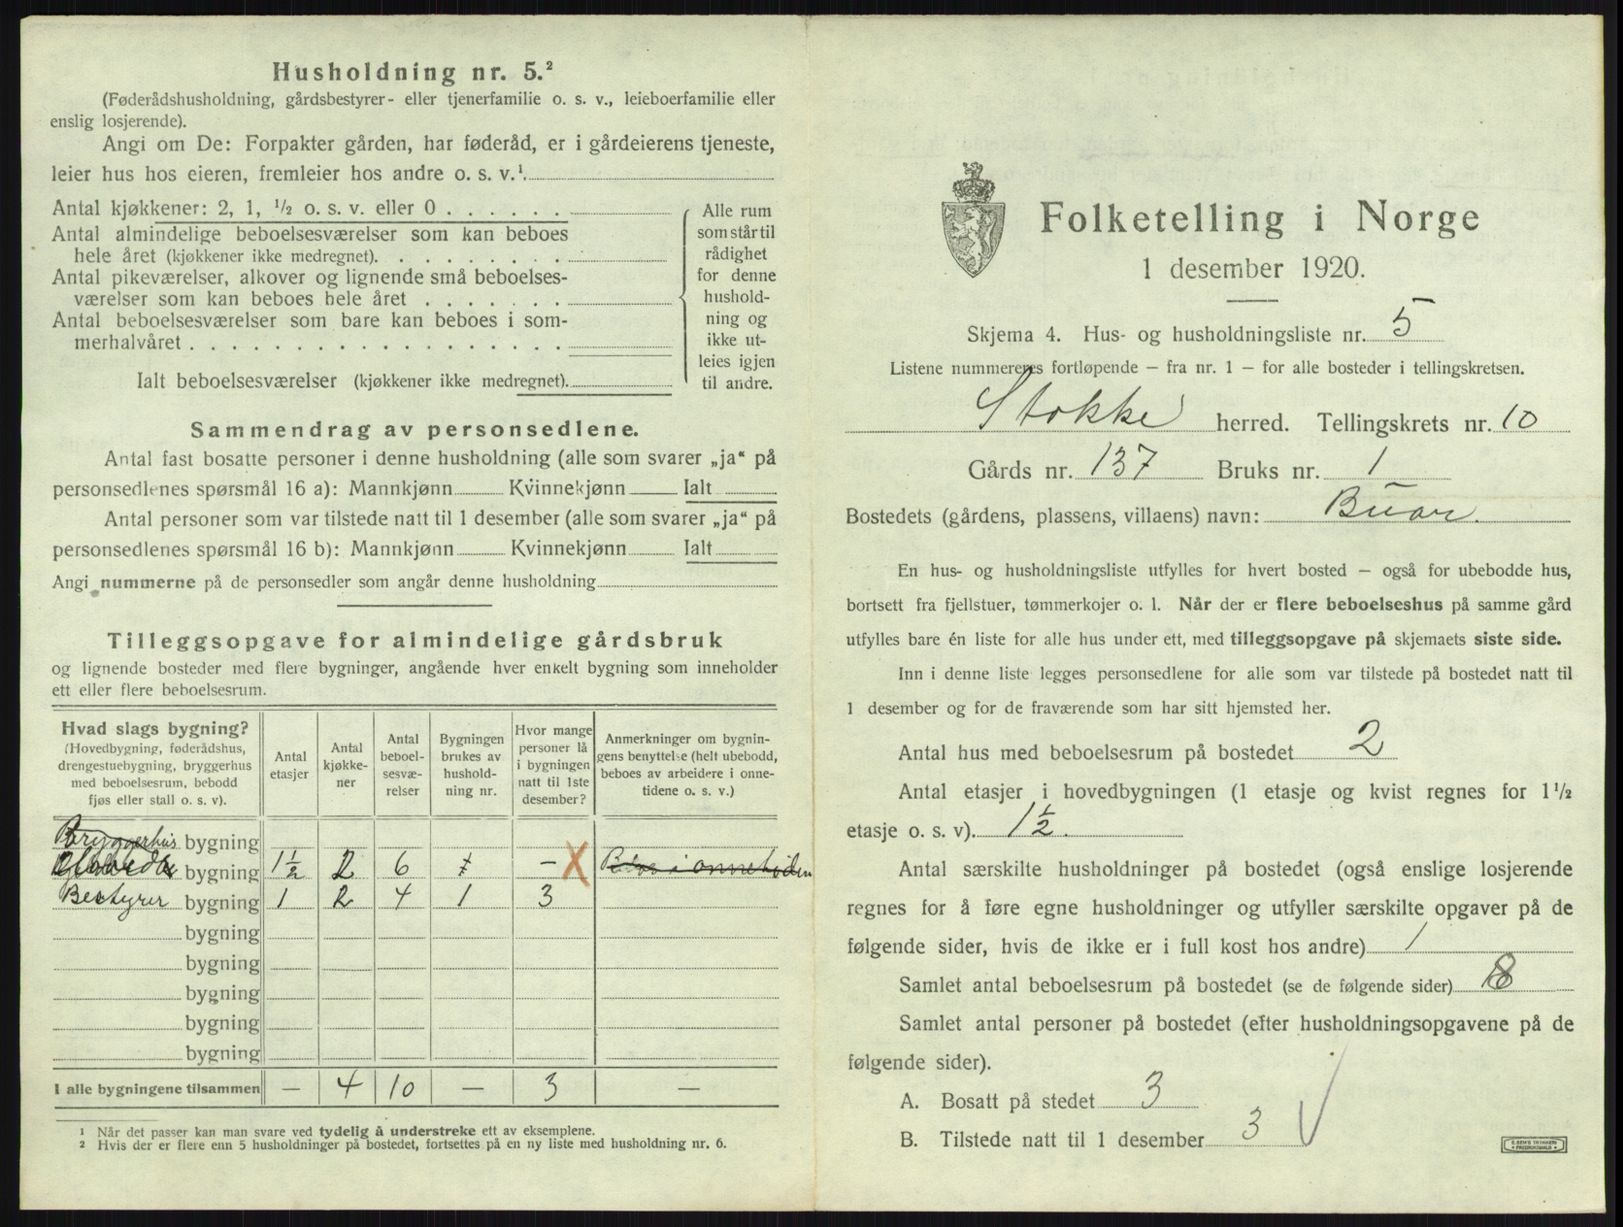 Husholdning nr. 5.²
(Føderådshusholdning, gårdsbestyrer- eller tjenerfamilie o. s. v., leieboerfamilie eller
enslig losjerende).
Angi om De: Forpakter gården, har føderåd, er i gårdeierens tjeneste,
leier hus hos eieren, fremleier hos andre o. s. v.¹
Antal kjøkkener: 2, 1, ½ o. s. v. eller 0 . . . . . .
Antal almindelige beboelsesværelser som kan beboes
hele året (kjøkkener ikke medregnet). . . . . . . . .
Antal pikeværelser, alkover og lignende små beboelses-
værelser som kan beboes hele året . . . . . . .
Antal beboelsesværelser som bare kan beboes i som-
merhalvåret . . . . . . . . . . . . . . . . . .
Ialt beboelsesværelser (kjøkkener ikke medregnet).
Alle rum
som står til
rådighet
for denne
hushold-
ning og
ikke ut-
leies igjen
til andre.
Sammendrag av personsedlene.
Antal fast bosatte personer i denne husholdning (alle som svarer „ja“ på
personsedlenes spørsmål 16 a): Mannkjønn Kvinnekjønn Ialt
Antal personer som var tilstede natt til 1 desember (alle som svarer „ja“ på
personsedlenes spørsmål 16 b): Mannkjønn Kvinnekjønn Ialt
Angi nummerne på de personsedler som angår denne husholdning
Tilleggsopgave for almindelige gårdsbruk
og lignende bosteder med flere bygninger, angående hver enkelt bygning som inneholder
ett eller flere beboelsesrum.
Hvad slags bygning?
(Hovedbygning, føderådshus,
drengestuebygning, bryggerhus
med beboelsesrum, bebodd
fjøs eller stall o. s. v).
Antal
etasjer
Antal
kjøkke-
ner
Antal
beboel-
sesvæ-
relser
Bygningen
brukes av
hushold-
ning nr.
Hvor mange
personer lå
i bygningen
natt til 1ste
desember?
Anmerkninger om bygnin-
gens benyttelse (helt ubebodd,
beboes av arbeidere i onne-
tidene o. s. v.)
Bryggerhus bygning
bygning 1½ 2 6 – X
Bestyrer bygning 1 2 4 1 3
bygning
bygning
bygning
bygning
bygning
I alle bygningene tilsammen – 4 10 – 3 –
¹ Når det passer kan man svare ved tydelig å understreke ett av eksemplene.
² Hvis der er flere enn 5 husholdninger på bostedet, fortsettes på en ny liste med husholdning nr. 6.
Folketelling i Norge
1 desember 1920.
Skjema 4. Hus- og husholdningsliste nr. 5
Listene nummereres fortløpende – fra nr. 1 – for alle bosteder i tellingskretsen.
Stokke herred. Tellingskrets nr. 10
Gårds nr. 137 Bruks nr. 1
Bostedets (gårdens, plassens, villaens) navn: Buar.
En hus- og husholdningsliste utfylles for hvert bosted – også for ubebodde hus,
bortsett fra fjellstuer, tømmerkojer o. l. Når der er flere beboelseshus på samme gård
utfylles bare én liste for alle hus under ett, med tilleggsopgave på skjemaets siste side.
Inn i denne liste legges personsedlene for alle som var tilstede på bostedet natt til
1 desember og for de fraværende som har sitt hjemsted her.
Antal hus med beboelsesrum på bostedet 2
Antal etasjer i hovedbygningen (1 etasje og kvist regnes for 1½
etasje o. s. v). 1½.
Antal særskilte husholdninger på bostedet (også enslige losjerende
regnes for å føre egne husholdninger og utfyller særskilte opgaver på de
følgende sider, hvis de ikke er i full kost hos andre) 1
Samlet antal beboelsesrum på bostedet (se de følgende sider)
Samlet antal personer på bostedet (efter husholdningsopgavene på de
følgende sider).
A. Bosatt på stedet 3
B. Tilstede natt til 1 desember 3